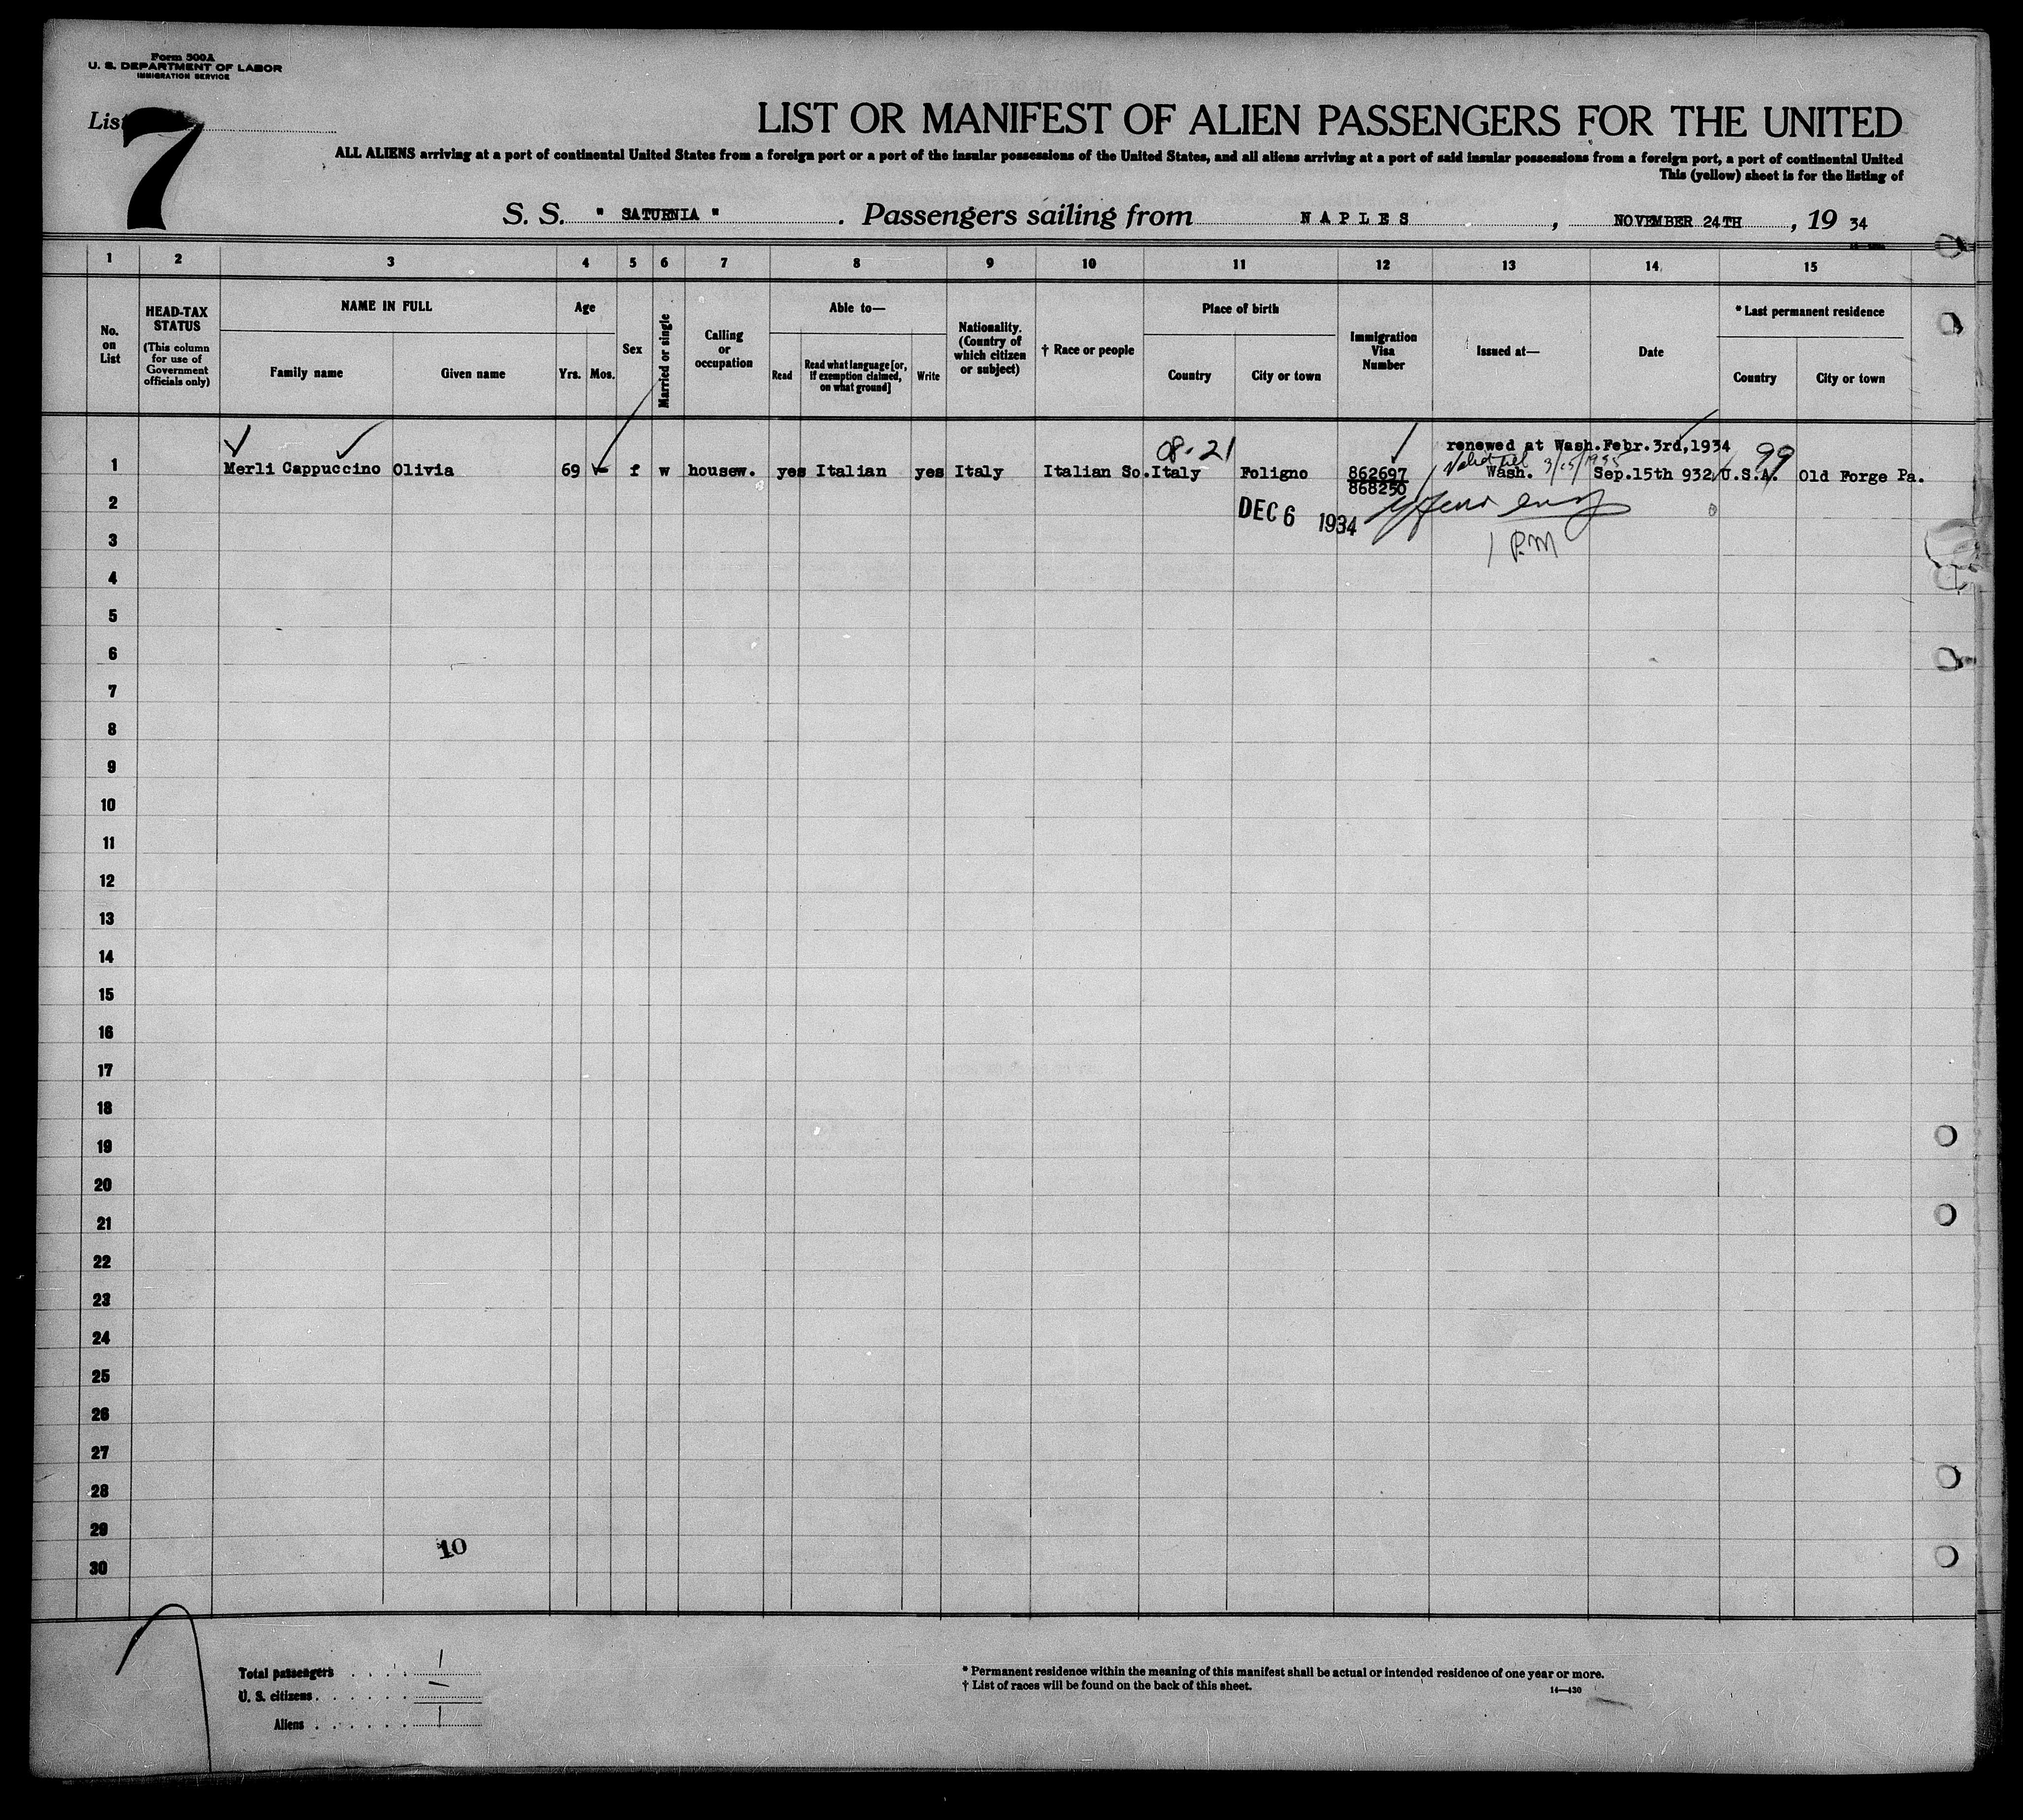 Form 500A
U. S. DEPARTMENT OF LABOR
IMMIGRATION SERVICE
List 7
LIST OR MANIFEST OF ALIEN PASSENGERS FOR THE UNITED
ALL ALIENS arriving at a port of continental United States from a foreign port or a port of the insular possessions of the United States, and all aliens arriving at a port of said insular possessions from a foreign port, a port of continental United
This (yellow) sheet is for the listing of
S. S. " SATURNIA " . Passengers sailing from NAPLES , NOVEMBER 24TH , 19 34
1 2 3 4 5 6 7 8 9 10 11 12 13 14 15
No. on List
HEAD-TAX STATUS
(This column for use of Government officials only)
NAME IN FULL
Family name Given name
Age
Yrs. Mos.
Sex
Married or single
Calling or occupation
Able to—
Read Read what language [or, if exemption claimed, on what ground] Write
Nationality. (Country of which citizen or subject)
† Race or people
Place of birth
Country City or town
Immigration Visa Number
Issued at—
Date
* Last permanent residence
Country City or town
08-21 renewed at Wash.Febr.3rd,1934 99
Valid til 3/15/1935
1 Merli Cappuccino Olivia 69 - f w housew. yes Italian yes Italy Italian So. Italy Foligno 862697 Wash. Sep.15th 932 U.S.A. Old Forge Pa.
868250
2 DEC 6 1934
3 1 P.M
4
5
6
7
8
9
10
11
12
13
14
15
16
17
18
19
20
21
22
23
24
25
26
27
28
29
10
30
Total passengers . . . . . 1
U. S. citizens . . . . . . —
Aliens . . . . . . 1
* Permanent residence within the meaning of this manifest shall be actual or intended residence of one year or more.
† List of races will be found on the back of this sheet.
14—430